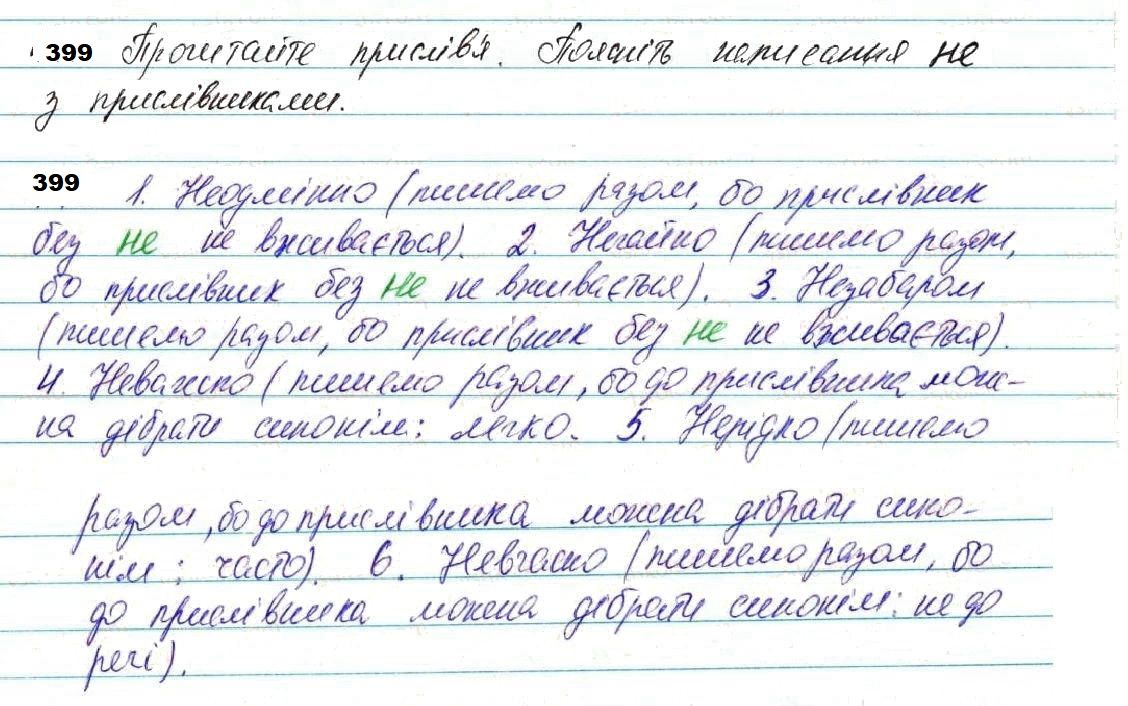 399 Прочитайте прислів'я. Поясніть написання не
з прислівниками.
399 1. Неодмінно (пишемо разом, бо прислівник
без не не вживається). 2. Негайно (пишемо разом,
бо прислівник без не не вживається). 3. Незабаром
(пишемо разом, бо прислівник без не не вживається).
4. Неважко (пишемо разом, бо до прислівника мож-
на дібрати синонім: легко. 5. Нерідко (пишемо
разом, бо до прислівника можна дібрати сино-
нім: часто). 6. Невчасно (пишемо разом, бо
до прислівника можна дібрати синонім: не до
речі).